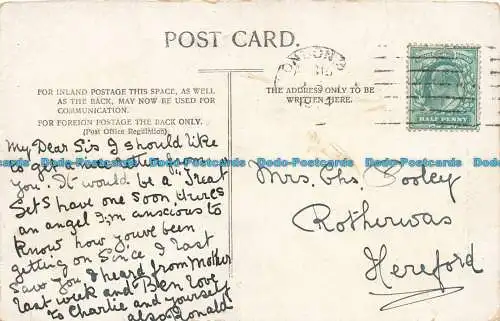 POST CARD.
FOR INLAND POSTAGE THIS SPACE, AS WELL
AS THE BACK, MAY NOW BE USED FOR
COMMUNICATION.
FOR FOREIGN POSTAGE THE BACK ONLY.
(Post Office Regulation)
THE ADDRESS ONLY TO BE
WRITTEN HERE.
LONDON
HALF PENNY
My Dear Sis I should like
to get a letter from
you. It would be a "Treat
Let's have one soon, theres
an angel I,m anscious to
know how youve been
getting on Since I last
saw you I heard from Mother
last week and Ben love
to Charlie and yourself
also Ronald
Mrs. Chs. Cooley
Rotherwas
Hereford
Dodo-Postcards Dodo-Postcards Dodo-Postcards Dodo-Postcards